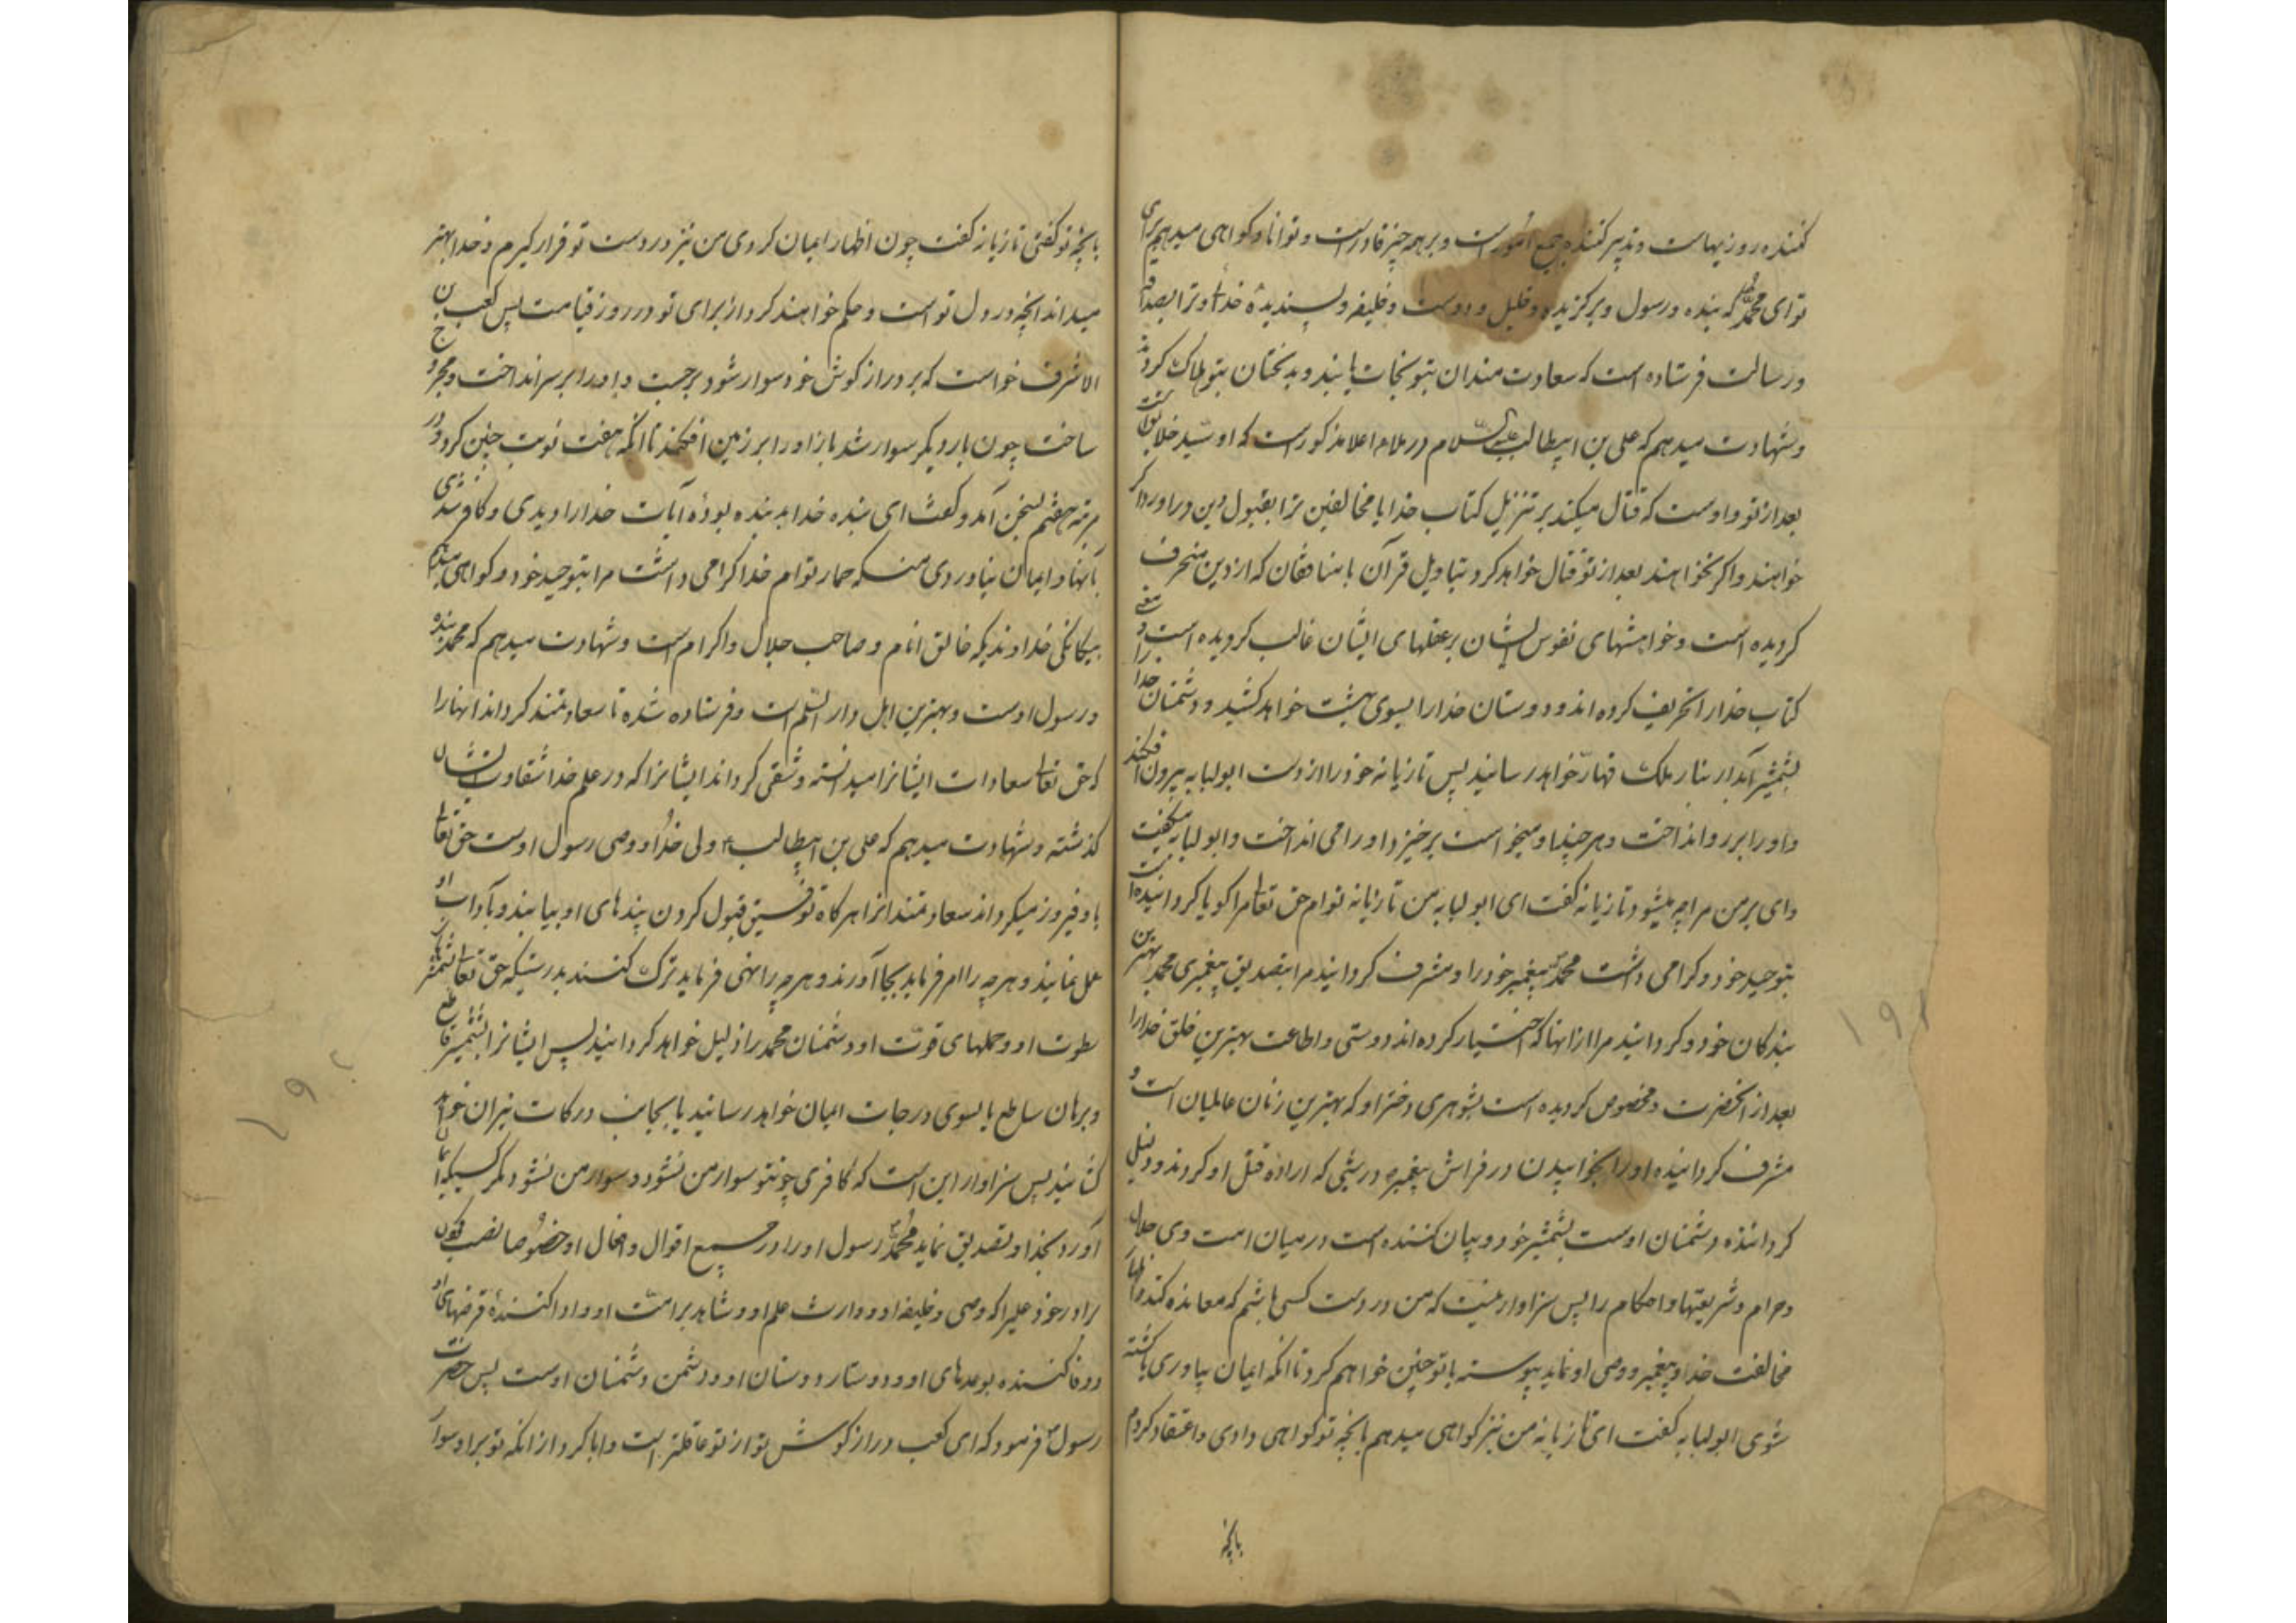 کننده روزیهاست و تدبیر کننده جمیع امورست و بر همه چیز قادرست و توانا و کواهی میدهم برای
تو ای محمد که بنده و رسول و برکزیده و خلیل و دوست و خلیفه و پسندیدۀ خدا و ترا
و رسالت فرستاده است که سعادت مندان بتو نجات یابند و بدبختان بتو هلاک کردند
و شهادت میدهم که علی بن ابیطالب علیه السلام در ملاء اعلا مذکورست که او سید خلایق است
بعد از تو و اوست که قتال میکند بر تنزیل کتاب خدا با مخالفین ترا بقبول دین در آورد اکر
خواهند و اکر نخواهند بعد از تو قتال خواهد کرد بتاویل قرآن با منافقان که از دین منحرف
کردیده است و خواهشهای نفوس ایشان بر عقلهای ایشان غالب کردیده است و معنی
کتاب خدا را تحریف کرده اند و دوستان خدا را بسوی بهشت خواهد کشید و دشمنان خدا را
بشمشیر آبدار بنار ملک قهار خواهد رسانید پس تازیانه خود را از دست ابولبابه بیرون افکند
و او را بر رو انداخت و هر چند او میخواست برخیزد او را می انداخت و ابولبابه میکفت
وای بر من مرا چه میشود تازیانه کفت ای ابولبابه من تازیانه توام حق تعالی مرا کویا کردانیده است
بتوحید خود و کرامی داشت محمد پیغمبر خود را و مشرف کردانید مرا بتصدیق پیغمبری محمد بهترین
بندکان خود و کردانید مرا از آنها که اختیار کرده اند دوستی و اطاعت بهترین خلق خدا را
بعد از آنحضرت و مخصوص کردیده است بشوهری دختر او که بهترین زنان عالمیان است و
مشرف کردانیده او را بخوابیدن در فراش پیغمبر در شبی که اراده قتل او کردند و ذلیل
کرداننده دشمنان اوست بشمشیر خود و بیان کننده است در میان امت وی حلال
و حرام و شریعتها و احکام را پس سزاوار نیست که من در دست کسی باشم که معانده کند و اظهار
مخالفت خدا و پیغمبر و وصی او نماید پیوسته با تو چنین خواهم کرد تا آنکه ایمان بیاوری یا کشته
شوی ابولبابه کفت ای تازیانه من نیز کواهی میدهم بآنچه تو کواهی دادی و اعتقاد کردم
بآنچه
بآنچه تو کفتی تازیانه کفت چون اظهار ایمان کردی من نیز در دست تو قرار کیرم و خدا بهتر
میداند آنچه در دل تو است و حکم خواهند کرد از برای تو در روز قیامت پس کعب بن
الاشرف خواست که بر دراز کوش خود سوار شود برجست و او را بر سر انداخت و مجروح
ساخت چون بار دیکر سوار شد باز او را بر زمین افکند تا آنکه هفت نوبت چنین کرد و در
مرتبه هفتم بسخن آمد و کفت ای بنده خدا بد بنده بودۀ آیات خدا را دیدی و کافر شدی
بآنها و ایمان نیاوردی منکه حمار توام خدا کرامی داشت مرا بتوحید خود و کواهی میدهم
بیکانکی خداوندیکه خالق انام و صاحب جلال و اکرام است و شهادت میدهم که محمد بنده
و رسول اوست و بهترین اهل دار السلم است و فرستاده شده تا سعادتمند کرداند آنها را
که حق تعالی سعادات ایشانرا میدانسته و شقی کرداند ایشانرا که در علم خدا شقاوت ایشان
کذشته و شهادت میدهم که علی بن ابیطالب ولی خدا و وصی رسول اوست حق تعالی
با و فیروز میکرداند سعادتمندانرا هرکاه توفیق قبول کردن پندهای او بیابند و بآداب او
عمل نمایند و هرچه را امر فرماید بجا آورند و هرچه را نهی فرماید ترک کنند بدرستیکه حق تعالی
سطوت او و حملهای قوت او دشمنان محمد را ذلیل خواهد کردانید پس ایشانرا بشمشیر قاطع
و برهان ساطع یا بسوی درجات ایمان خواهد رسانید یا بجانب درکات نیران خواهد
کشانید پس سزاوار این است که کافری چو تو سوار من نشود و سوار من نشود مکر کسیکه ایمان
آورد بخدا و تصدیق نماید محمد رسول او را در جمیع اقوال و افعال او خصوصا نصب کردن
برادر خود علیرا که وصی و خلیفه او و وارث علم او و شاهد بر امت او و ادا کنندۀ قرضهای او
و وفا کننده بوعدهای او و دوستار دوستان او و دشمن دشمنان اوست پس حضرت
رسول فرمود که ای کعب دراز کوش تو از تو عاقلتر است و ابا کرد از آنکه تو بر او سوار